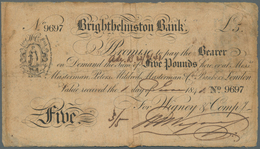 No 9697 Brighthelmston Bank £5.
I Promise to pay the Bearer
on Demand the Sum of Five Pounds here or at Mess.
Masterman, Peters, Mildred, Masterman & Co. Bankers London
Value received the 1 day of 18 No 9697
For Wigney & Compy.
Five